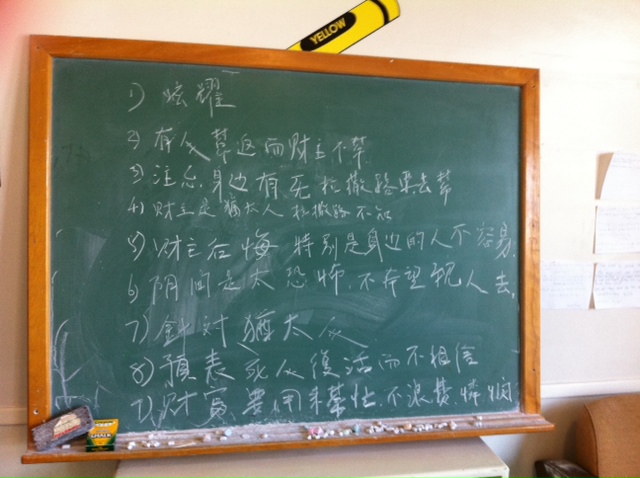 YELLOW
1) 炫耀
2) 有人幫返而财主不幫
3) 注意身边有无拉撒路要去幫
4) 财主是猶太人拉撒路不是
5) 财主后悔 特别是身边的人不容易.
6) 阴间是太恐怖.不希望親人去.
7) 針对猶太人
8) 預表死人復活而不相信
财富要用来幫忙不浪费憐悯
CHALK